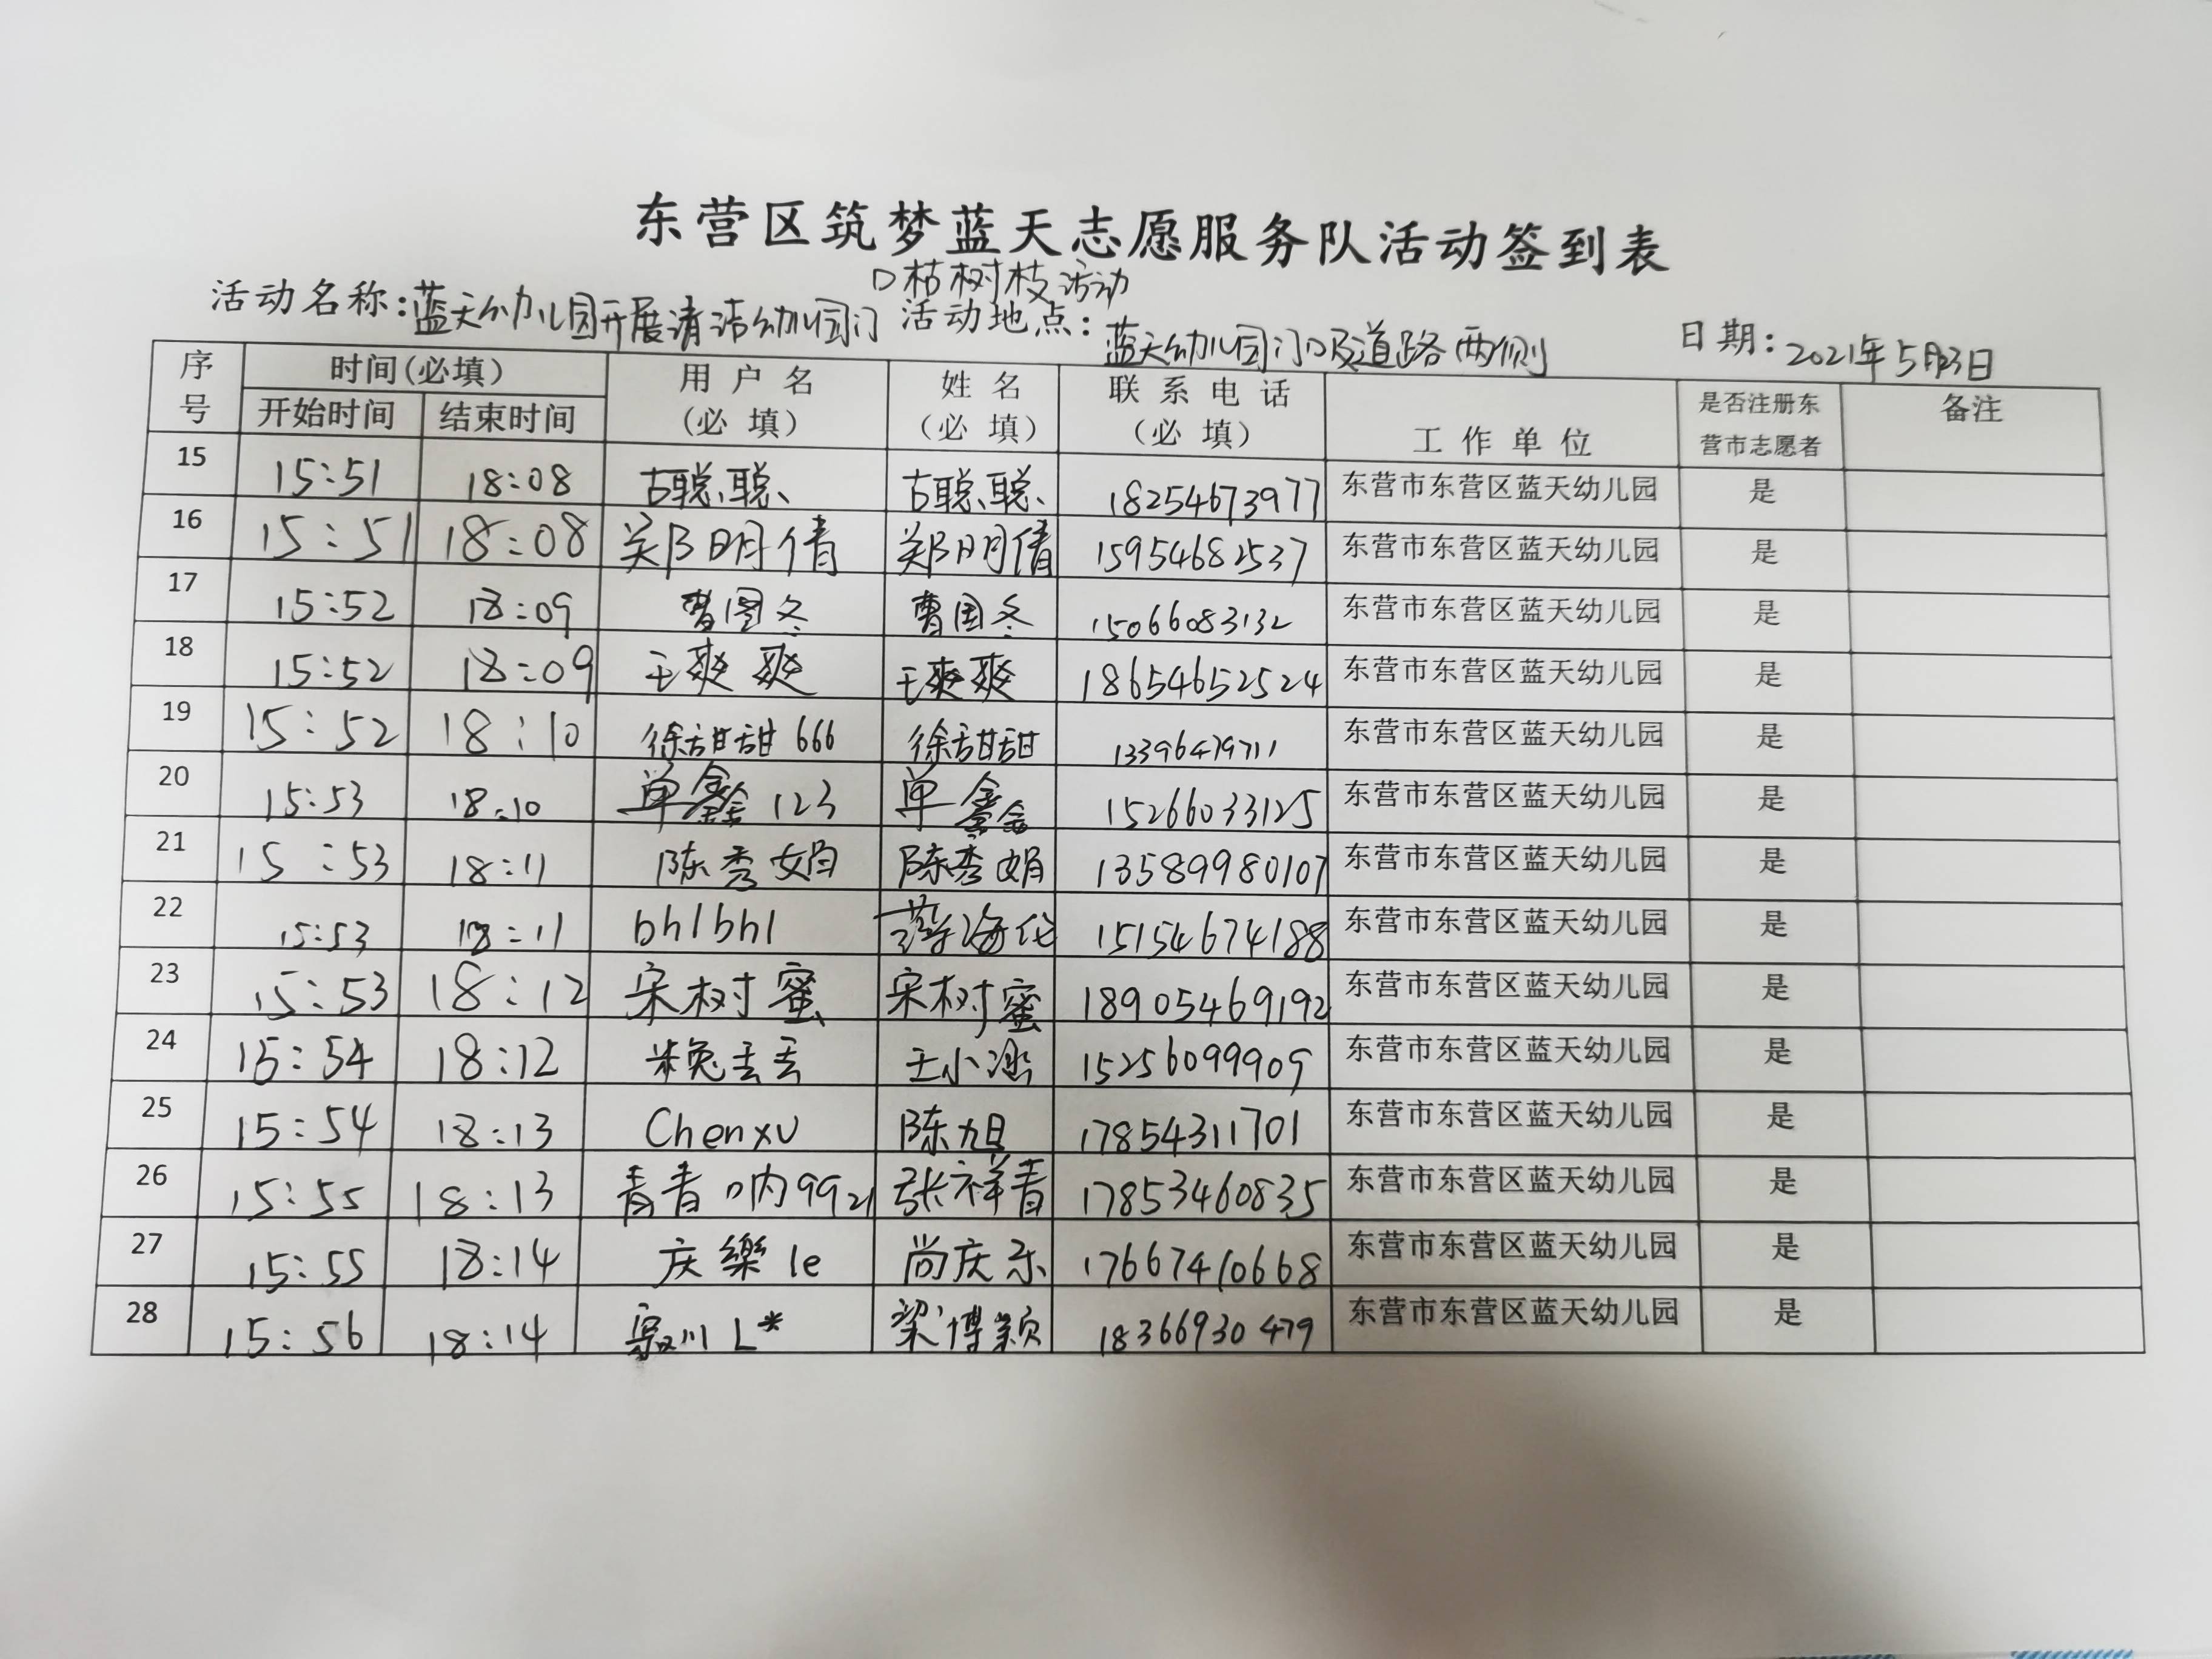 东营区筑梦蓝天志愿服务队活动签到表
口枯树枝活动
活动名称：蓝天幼儿园开展清洁幼儿园门 活动地点：蓝天幼儿园门口及道路两侧 日期：2021年5月23日
序号 时间(必填) 用户名(必填) 姓名(必填) 联系电话(必填) 工作单位 是否注册东营市志愿者 备注
开始时间 结束时间
15 15:51 18:08 古聪聪 古聪聪 18254673977 东营市东营区蓝天幼儿园 是
16 15:51 18:08 郑明倩 郑明倩 15954682537 东营市东营区蓝天幼儿园 是
17 15:52 18:09 曹国冬 曹国冬 15066083132 东营市东营区蓝天幼儿园 是
18 15:52 18:09 王爽爽 王爽爽 18654652524 东营市东营区蓝天幼儿园 是
19 15:52 18:10 徐甜甜666 徐甜甜 13396479711 东营市东营区蓝天幼儿园 是
20 15:53 18:10 单鑫123 单鑫 15266033125 东营市东营区蓝天幼儿园 是
21 15:53 18:11 陈秀娟 陈秀娟 13589980107 东营市东营区蓝天幼儿园 是
22 15:53 18:11 bhlbhl 薄海伦 15154674188 东营市东营区蓝天幼儿园 是
23 15:53 18:12 宋树蜜 宋树蜜 18905469192 东营市东营区蓝天幼儿园 是
24 15:54 18:12 米兔丢丢 王小 15256099909 东营市东营区蓝天幼儿园 是
25 15:54 18:13 Chenxu 陈旭 17854311701 东营市东营区蓝天幼儿园 是
26 15:55 18:13 青青呐9921 张祥青 17853460835 东营市东营区蓝天幼儿园 是
27 15:55 18:14 庆樂le 尚庆乐 17667410668 东营市东营区蓝天幼儿园 是
28 15:56 18:14 L* 梁博颖 18366930479 东营市东营区蓝天幼儿园 是